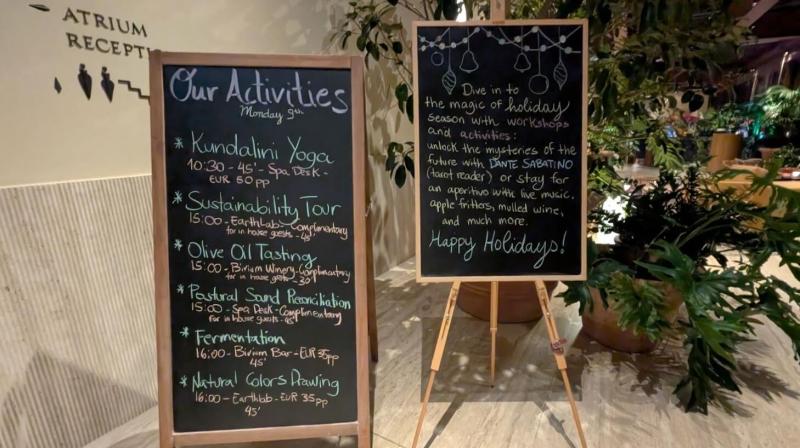 ATRIUM
RECEPT
Our Activities
Monday 9th
* Kundalini Yoga
10:30 - 45' - Spa Desk -
EUR 50 pp
* Sustainability Tour
15:00 - EarthLab - Complimentary
for in house guests - 45'
* Olive Oil Tasting
15:00 - Bivium Winery - Complimentary
for in house guests - 30'
* Postural Sound Reconciliation
15:00 - Spa Desk - Complimentary
for in house guests - 45'
* Fermentation
16:00 - Bivium Bar - EUR 35pp
45'
* Natural Colors Drawing
16:00 - Earthlab - EUR 35pp
45'
Dive in to
the magic of holiday
season with workshops
and activities:
unlock the mysteries of the
future with DANTE SABATINO
(tarot reader) or stay for
an aperitivo with live music,
apple fritters, mulled wine,
and much more.
Happy Holidays!